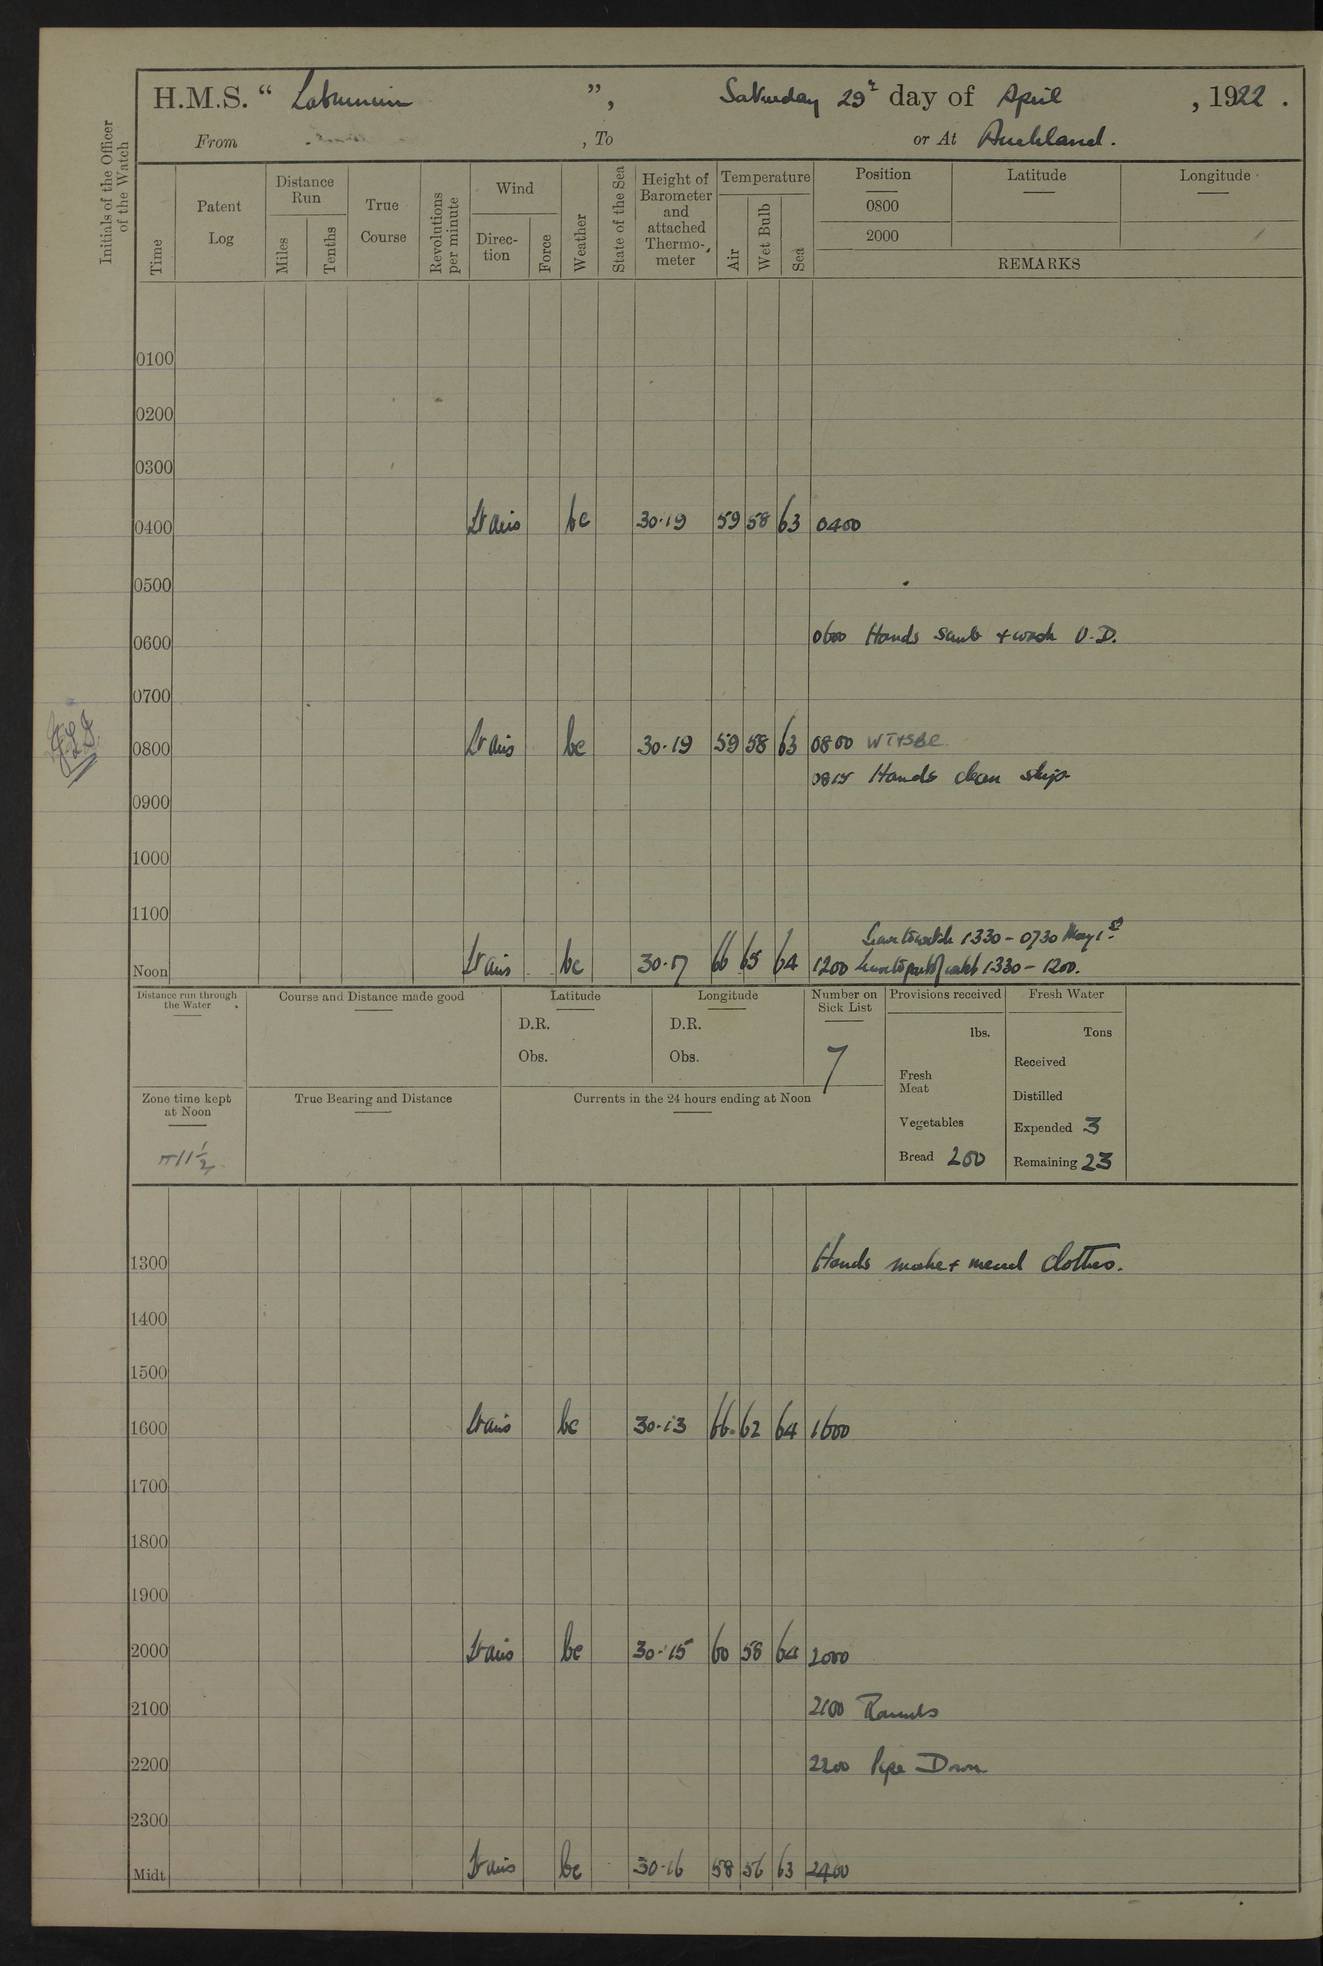 H.M.S. “ Laburnum ”, Saturday 29th day of April , 1922 .
From , To or At Auckland.
Initials of the Officer of the Watch
Time
Patent Log
Distance Run
Miles
Tenths
True Course
Revolutions per minute
Wind
Direc- tion
Force
Weather
State of the Sea
Height of Barometer and attached Thermo- meter
Temperature
Air
Wet Bulb
Sea
Position Latitude Longitude
0800
2000
REMARKS
0100
0200
0300
0400 Lt airs bc 30.19 59 58 63 0400
0500
0600 0600 Hands scrub & wash U.D.
0700
0800 Lt airs bc 30.19 59 58 63 0800 WT&SBC
0815 Hands clean ship
0900
1000
1100
Leave to watch 1330 - 0730 May 1st
Noon Lt airs bc 30.17 66 65 64 1200 Leave to part of watch 1330 - 1200.
Distance run through the Water
Course and Distance made good
Latitude
D.R.
Obs.
Longitude
D.R.
Obs.
Number on Sick List
7
Provisions received
lbs.
Fresh Meat
Vegetables
Bread 200
Fresh Water
Tons
Received
Distilled
Expended 3
Remaining 23
Zone time kept at Noon
-11 1/2
True Bearing and Distance
Currents in the 24 hours ending at Noon
1300 Hands make & mend clothes.
1400
1500
1600 Lt airs bc 30.13 66 62 64 1600
1700
1800
1900
2000 Lt airs bc 30.15 60 58 64 2000
2100 2100 Rounds
2200 2200 Pipe Down
2300
Midt. Lt airs bc 30.16 58 56 63 2400